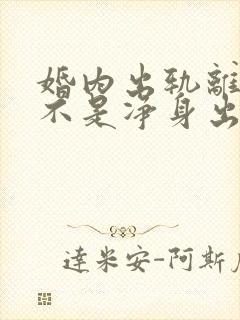 婚内出轨離
不是净身出
達米安-阿斯